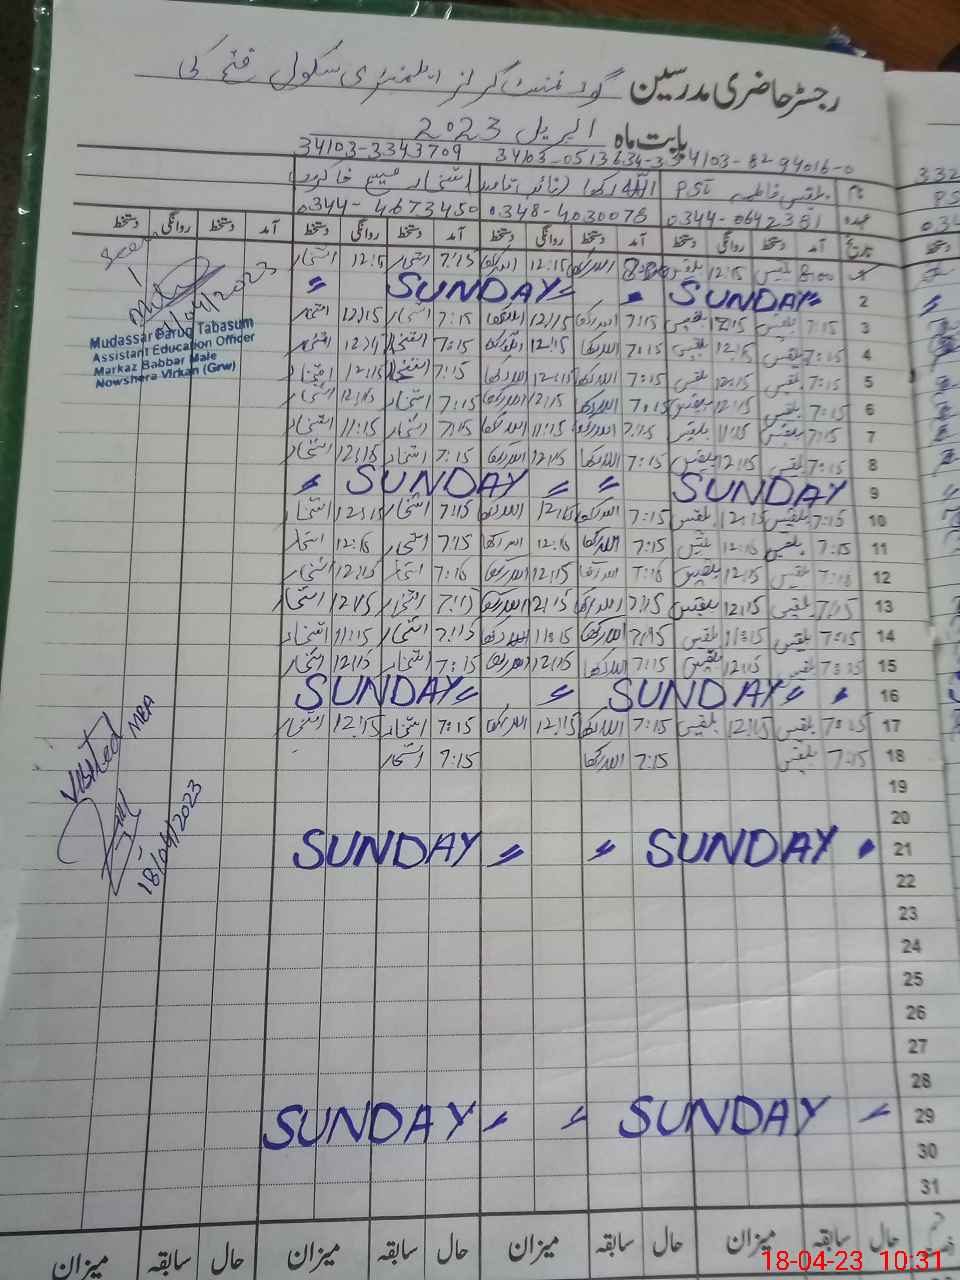 رجسٹر حاضری مدرسین گورنمنٹ گرلز ایلیمنٹری سکول فتح کی
بابت ماہ اپریل 2023
34103-3343709 34103-0513634-3 34103-8294016-0
نام بلقیس فاطمہ PST اللہ رکھا (نائب قاصد) افتخار مسیح خاکروب
عہدہ 0344-0642381 0348-4030078 0344-4673450
تاریخ آمد دستخط روانگی دستخط آمد دستخط روانگی دستخط آمد دستخط روانگی دستخط آمد دستخط روانگی دستخط
1 8:00 بلقیس 12:15 بلقیس 8:00 اللہ رکھا 12:15 اللہ رکھا 7:15 افتخار 12:15 افتخار
2 SUNDAY SUNDAY
3 7:15 بلقیس 12:15 بلقیس 7:15 اللہ رکھا 12:15 اللہ رکھا 7:15 افتخار 12:15 افتخار
4 7:15 بلقیس 12:15 بلقیس 7:15 اللہ رکھا 12:15 اللہ رکھا 7:15 افتخار افتخار
5 7:15 بلقیس 12:15 بلقیس 7:15 اللہ رکھا 12:15 اللہ رکھا 7:15 افتخار 12:15 افتخار
6 7:15 بلقیس 12:15 بلقیس 7:15 اللہ رکھا 12:15 اللہ رکھا 7:15 افتخار 12:15 افتخار
7 7:15 بلقیس 11:15 بلقیس 7:15 اللہ رکھا 11:15 اللہ رکھا 7:15 افتخار 11:15 افتخار
8 7:15 بلقیس 12:15 بلقیس 7:15 اللہ رکھا 12:15 اللہ رکھا 7:15 افتخار 12:15 افتخار
9 SUNDAY SUNDAY
10 7:15 بلقیس 12:15 بلقیس 7:15 اللہ رکھا 12:15 اللہ رکھا 7:15 افتخار 12:15 افتخار
11 7:15 بلقیس 12:15 بلقیس 7:15 اللہ رکھا 12:15 اللہ رکھا 7:15 افتخار 12:15 افتخار
12 7:15 بلقیس 12:15 بلقیس 7:15 اللہ رکھا 12:15 اللہ رکھا 7:15 افتخار 12:15 افتخار
13 7:15 بلقیس 12:15 بلقیس 7:15 اللہ رکھا 12:15 اللہ رکھا 7:15 افتخار 12:15 افتخار
14 7:15 بلقیس 11:15 بلقیس 7:15 اللہ رکھا 11:15 اللہ رکھا 7:15 افتخار 11:15 افتخار
15 7:15 بلقیس 12:15 بلقیس 7:15 اللہ رکھا 12:15 اللہ رکھا 7:15 افتخار 12:15 افتخار
16 SUNDAY SUNDAY
17 7:15 بلقیس 12:15 بلقیس 7:15 اللہ رکھا 12:15 اللہ رکھا 7:15 افتخار 12:15 افتخار
18 7:15 بلقیس 7:15 اللہ رکھا 7:15 افتخار
19
20
21 SUNDAY SUNDAY
22
23
24
25
26
27
28
29 SUNDAY SUNDAY
30
31
حال سابقہ میزان حال سابقہ میزان حال سابقہ میزان حال سابقہ میزان
Seen
/04/2023
Mudassar Faruq Tabasum
Assistant Education Officer
Markaz Babbar Male
Nowshera Virkan (Grw)
Visited MBA
18/04/2023
18-04-23 10:31